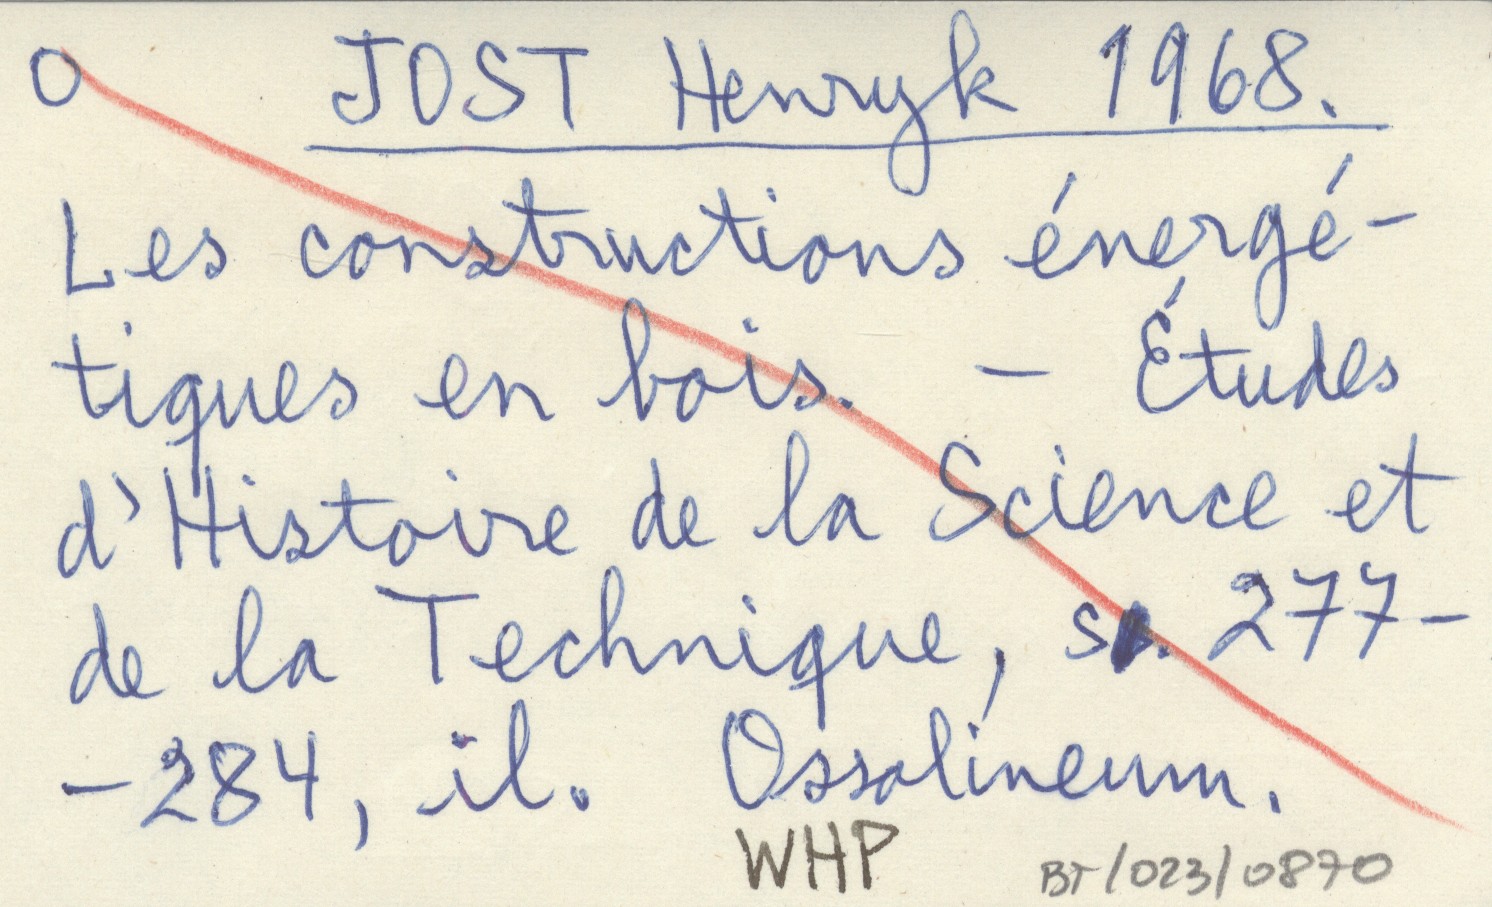 O JOST Henryk 1968.
Les constructions énergé-
tiques en bois. - Études
d'Histoire de la Science et
de la Technique, s. 277-
-284, il. Ossolineum.
WHP
BT/023/0870